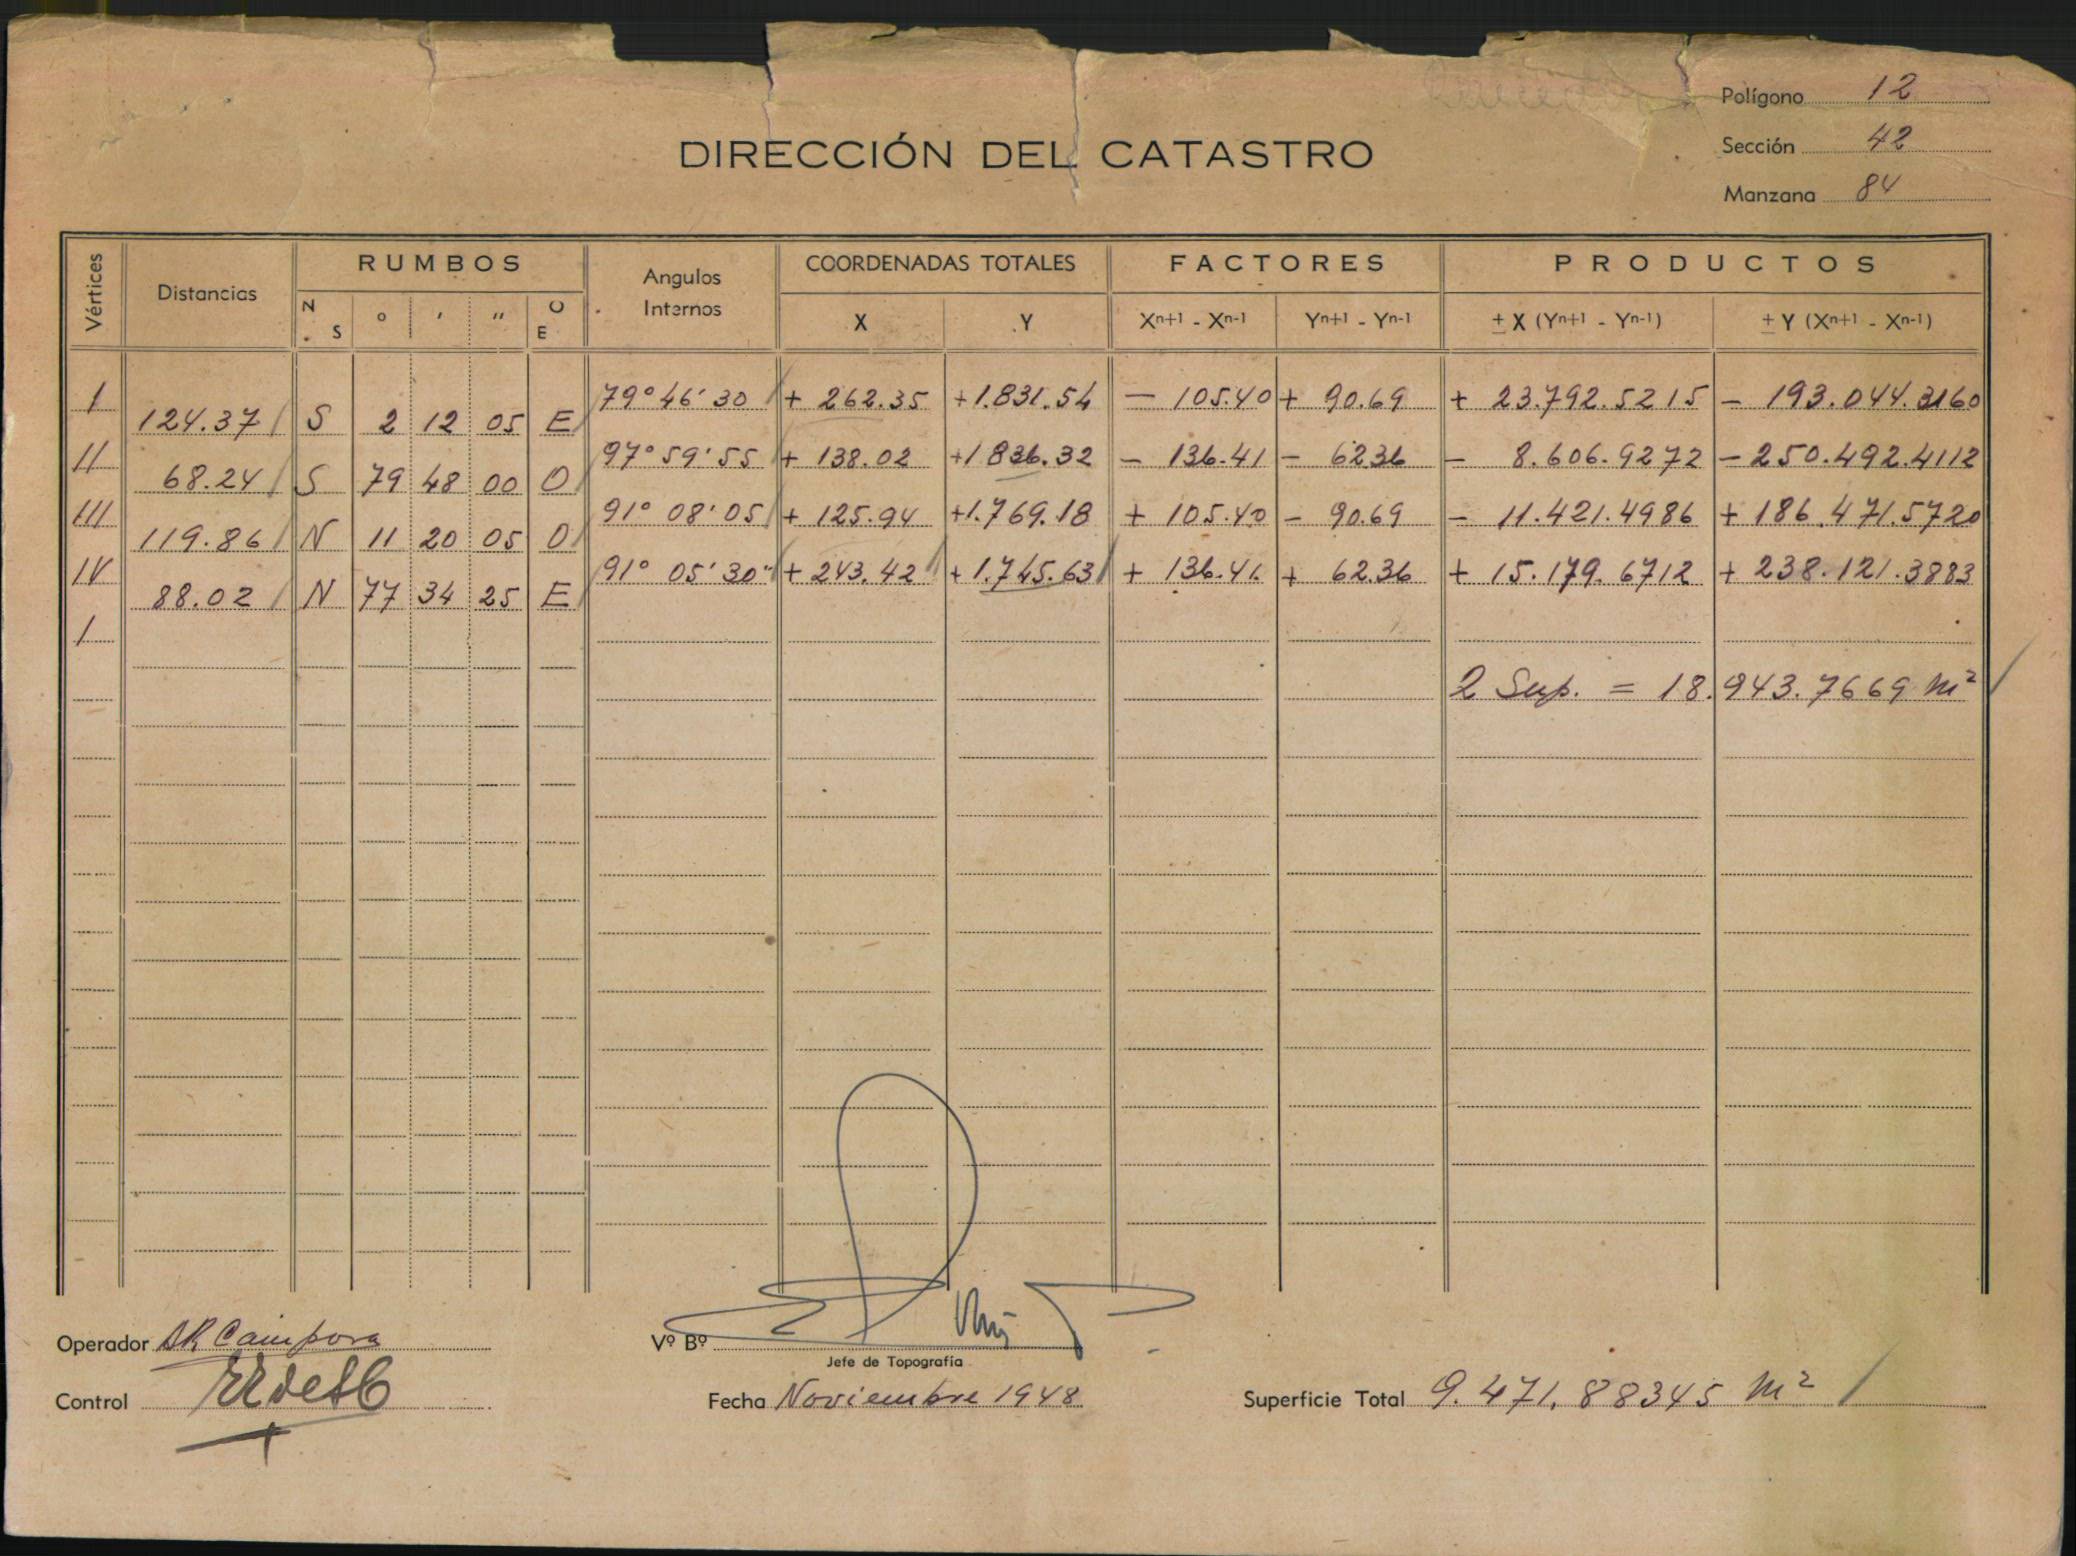 Polígono 12
DIRECCIÓN DEL CATASTRO
Sección 42
Manzana 84
Vértices Distancias RUMBOS Angulos Internos COORDENADAS TOTALES FACTORES PRODUCTOS
N S ° ' " O E X Y Xn+1 - Xn-1 Yn+1 - Yn-1 ± X (Yn+1 - Yn-1) ± Y (Xn+1 - Xn-1)
I 79° 46' 30 + 262.35 +1.831.54 - 105.40 + 90.69 + 23.792.5215 - 193.044.3160
124.37 S 2 12 05 E
II 97° 59' 55 + 138.02 +1.836.32 - 136.41 - 62.36 - 8.606.9272 - 250.492.4112
68.24 S 79 48 00 O
III 91° 08' 05 + 125.94 +1.769.18 + 105.40 - 90.69 - 11.421.4986 + 186.471.5720
119.86 N 11 20 05 O
IV 91° 05' 30" + 243.42 +1.745.63 + 136.41 + 62.36 + 15.179.6712 + 238.121.3883
88.02 N 77 34 25 E
I
2 Sup. = 18.943.7669 m²
Operador AR Campora
Vº Bº
Jefe de Topografía
Control
Fecha Noviembre 1948
Superficie Total 9.471,88345 m²